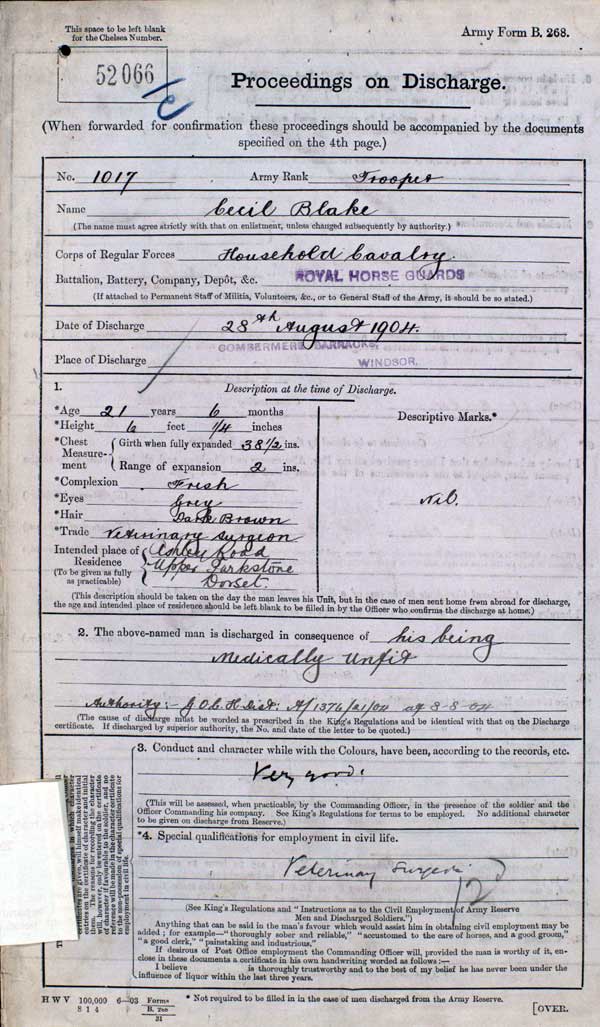 This space to be left blank
for the Chelsea Number.
Army Form B. 268.
52066
Proceedings on Discharge.
(When forwarded for confirmation these proceedings should be accompanied by the documents
specified on the 4th page.)
No. 1017 Army Rank Trooper
Name Cecil Blake
(The name must agree strictly with that on enlistment, unless changed subsequently by authority.)
Corps of Regular Forces Household Cavalry.
Battalion, Battery, Company, Depôt, &c. ROYAL HORSE GUARDS
(If attached to Permanent Staff of Militia, Volunteers, &c., or to General Staff of the Army, it should be so stated.)
Date of Discharge 28th August 1904.
Place of Discharge COMBERMERE BARRACKS, WINDSOR.
1. Description at the time of Discharge.
*Age 21 years 6 months
*Height 6 feet 1/4 inches
*Chest Measure-ment Girth when fully expanded 38 1/2 ins.
Range of expansion 2 ins.
*Complexion Fresh
*Eyes Grey
*Hair Dark Brown
*Trade Veterinary Surgeon
Intended place of Residence Ashley Road
(To be given as fully as practicable) Upper Parkstone
Dorset.
Descriptive Marks.*
Nil.
(This description should be taken on the day the man leaves his Unit, but in the case of men sent home from abroad for discharge,
the age and intended place of residence should be left blank to be filled in by the Officer who confirms the discharge at home.)
2. The above-named man is discharged in consequence of his being
Medically Unfit
Authority:- G O C H Dist: A/1376/21/04 of 8-8-04
(The cause of discharge must be worded as prescribed in the King's Regulations and be identical with that on the Discharge
certificate. If discharged by superior authority, the No. and date of the letter to be quoted.)
3. Conduct and character while with the Colours, have been, according to the records, etc.
Very good.
(This will be assessed, when practicable, by the Commanding Officer, in the presence of the soldier and the
Officer Commanding his company. See King's Regulations for terms to be employed. No additional character
to be given on discharge from Reserve.)
*4. Special qualifications for employment in civil life.
Veterinary Surgeon
(See King's Regulations and "Instructions as to the Civil Employment of Army Reserve
Men and Discharged Soldiers.")
Anything that can be said in the man's favour which would assist him in obtaining civil employment may be
added; for example—"thoroughly sober and reliable," "accustomed to the care of horses, and a good groom,"
"a good clerk," "painstaking and industrious,"
If desirous of Post Office employment the Commanding Officer will, provided the man is worthy of it, en-
close in these documents a certificate in his own handwriting worded as follows:—
I believe is thoroughly trustworthy and to the best of my belief he has never been under the
influence of liquor within the last three years.
H W V 100,000 6—03 Forms
8 1 4
B. 268
31
* Not required to be filled in in the case of men discharged from the Army Reserve.
[OVER.